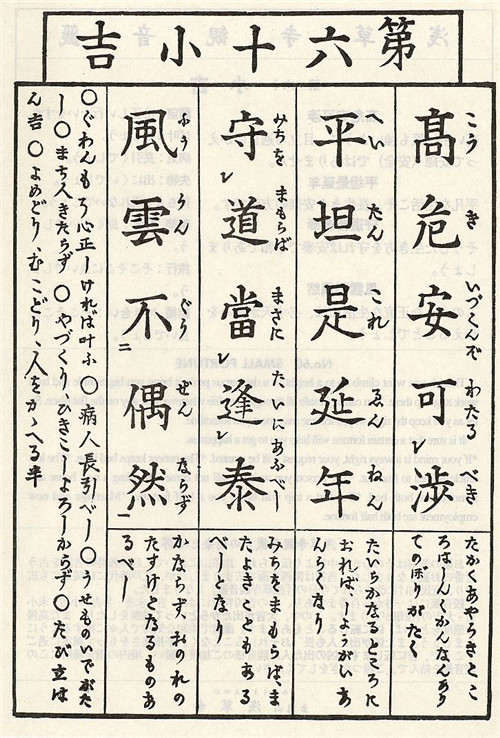 第六十小吉
髙危安可渉
こうき いづくんぞ わたるべき
たかくあやうきとこ
ろはしんくかんなんあり
てのぼりがたく
平坦是延年
へいたん これ ゑんねん
たいらかなるところに
おれば、しようがいあ
んらくなり
守レ道當レ逢レ泰
みちを まもらば まさに たいにあふべし
みちをまもらば、ま
たよきこともある
べしとなり
風雲不二偶然一
ふううん ぐうぜん ならず
かならずおのれの
たすけとなるものあ
るべし
○ぐわんもう心正しければ叶ふ ○病人長引べし ○うせものいでがた
し ○まち人きたらず ○やづくりひきこしよろしからず ○たび立は
ん吉 ○よめどり、むこどり、人をかゝへる半